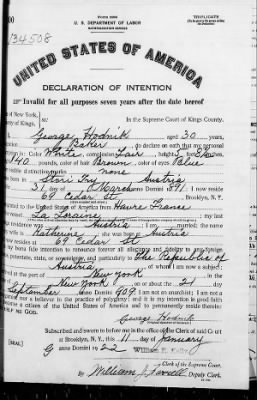 TRIPLICATE
U. S. DEPARTMENT OF LABOR
NATURALIZATION SERVICE
134508
UNITED STATES OF AMERICA
DECLARATION OF INTENTION
Invalid for all purposes seven years after the date hereof
of New York,
ty of Kings,
ss:
In the Supreme Court of Kings County.
George Hodnik aged 30 years,
Baker do declare on oath that my personal
is: Color White, complexion Fair, height 5 feet
140 pounds, color of hair Brown, color of eyes Blue
visible distinctive marks none
Stari Austria
31 day of March Anno Domini 1891; I now reside
69 Cedar St Brooklyn, N. Y.
to the United States of America from Havre France
La Loraine ; my last
residence was Austria married; the name
wife is Katherine Austria
reside at 69 Cedar St
my bona fide intention to renounce forever all allegiance and fidelity to any foreign
potentate, state, or sovereignty, and particularly to The Republic of
Austria of whom I am now a subject;
at the port of New York
New York on or about the 21 day
September anno Domini 1909; I am not an anarchist; I am not a
nor a believer in the practice of polygamy; and it is my intention in good faith
a citizen of the United States of America and to permanently reside therein:
HELP ME GOD.
George Hodnik
Subscribed and sworn to before me in the office of the Clerk of said Court
at Brooklyn, N. Y., this 11 day of January
anno Domini 1922
[SEAL]
Clerk of the Supreme Court.
By William J. Farrell Deputy Clerk.